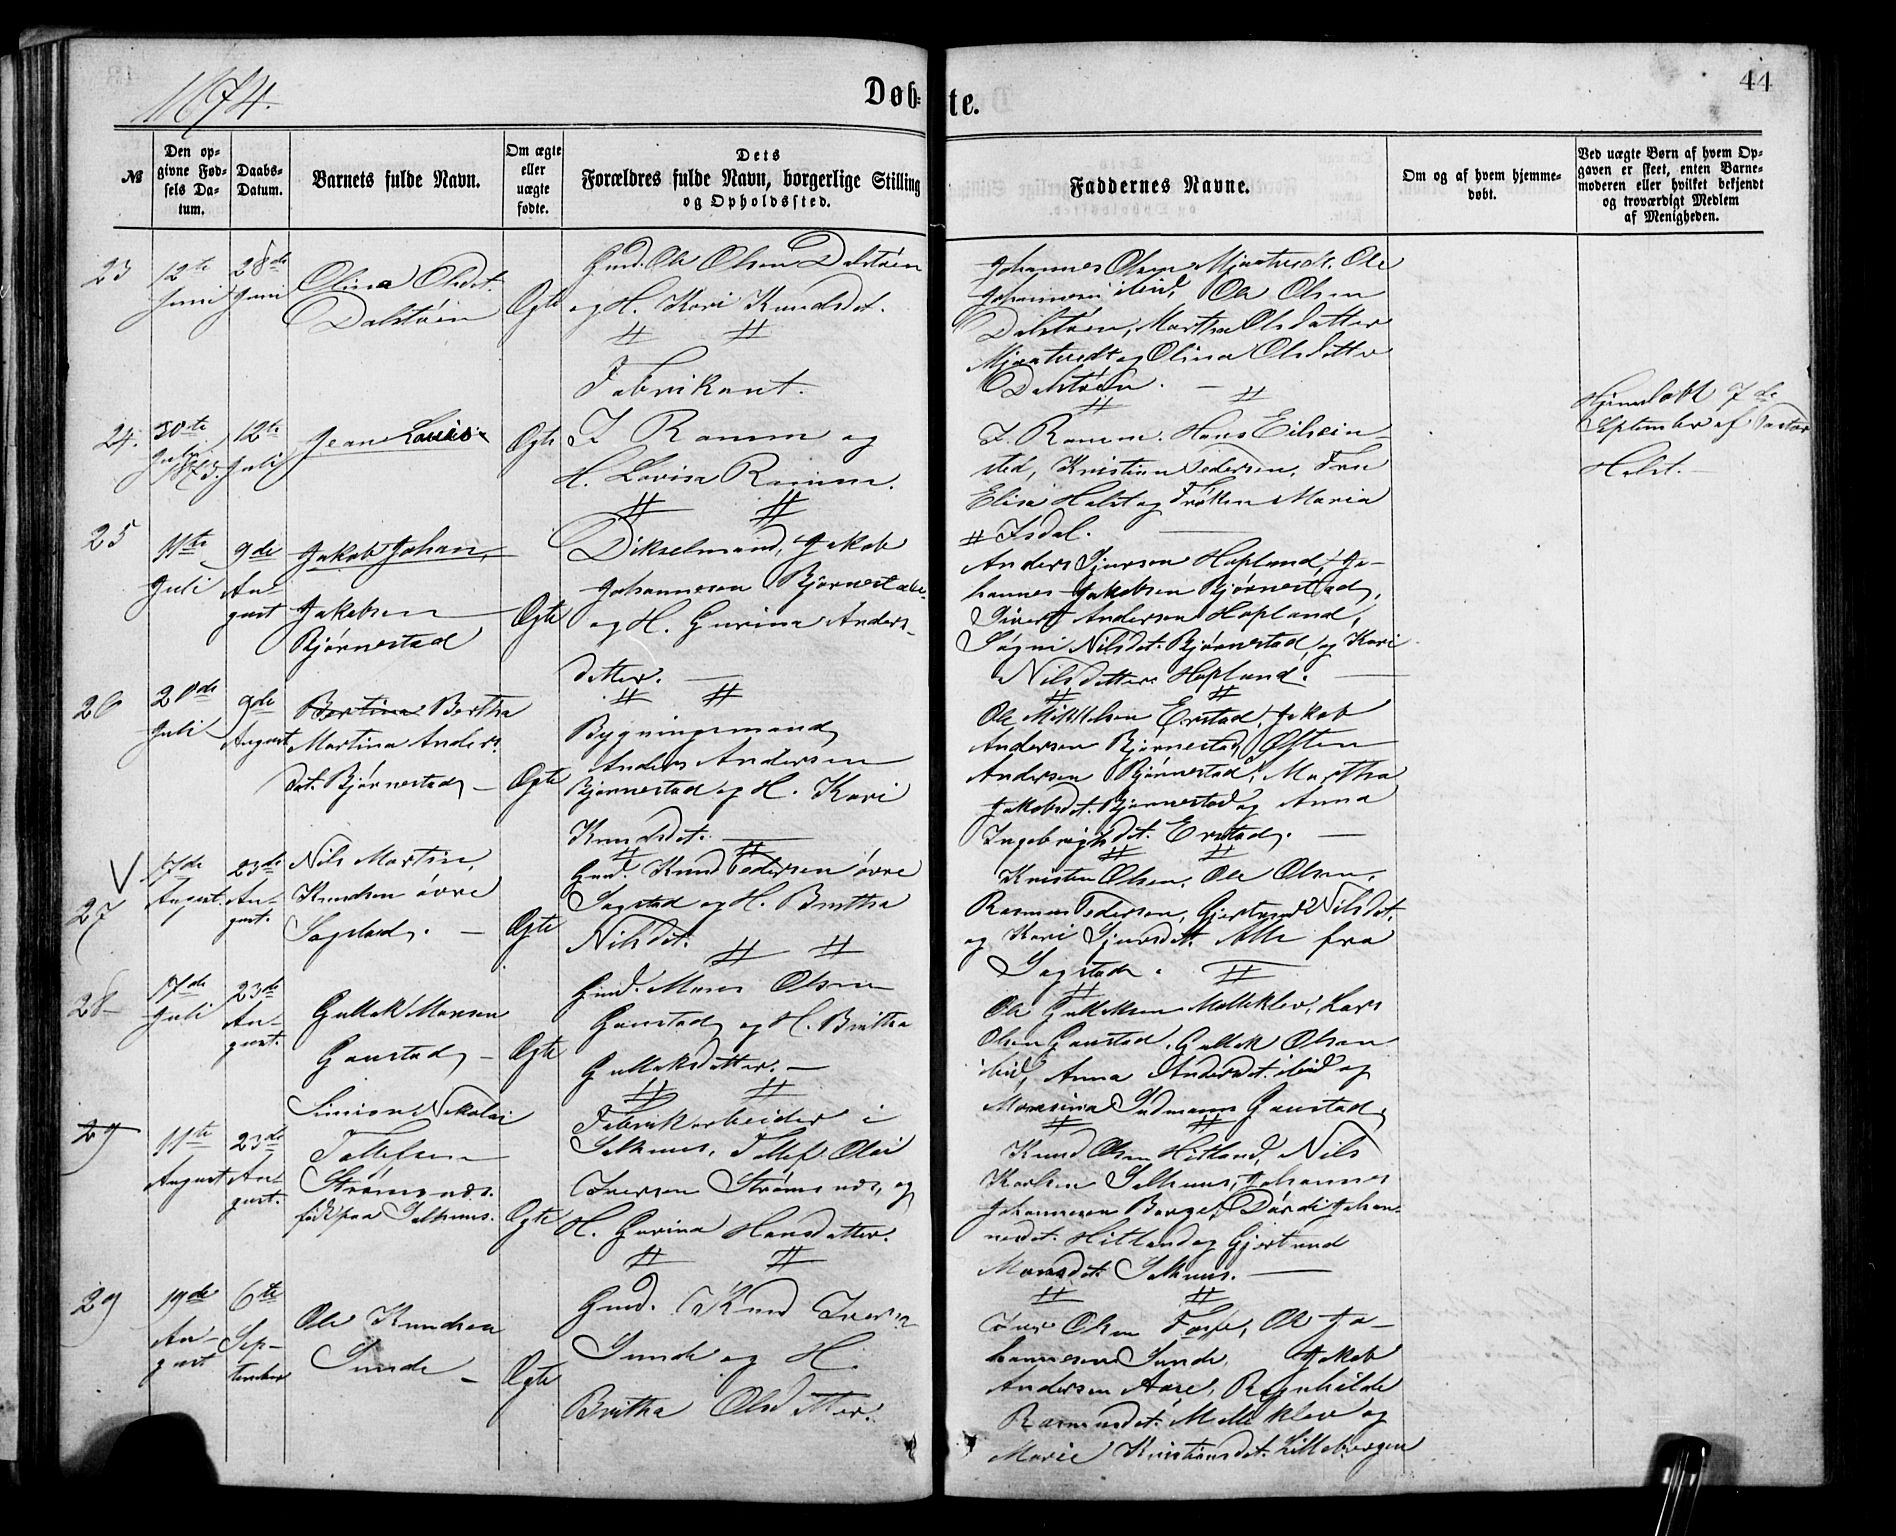 1874.
Døb-
te.
44
№
Den op-
givne Fød-
sels Da-
tum.
Daabs-
Datum.
Barnets fulde Navn.
Om ægte
eller
uægte
fødte.
Dets
Forældres fulde Navn, borgerlige Stilling
og Opholdssted.
Faddernes Navne.
Om og af hvem hjemme-
døbt.
Ved uægte Børn af hvem Op-
gaven er skeet, enten Barne-
moderen eller hvilket bekjendt
og troværdigt Medlem
af Menigheden.
23
12te
Juni
28de
Juni
Olina Olsdt.
Dalstøen
Ægte
Gmd. Ole Olsen Dalstøen
og H. Kari Knudsdt.
Johannes Olsen Mjaatvedt, Ole
Johannesen ibid, Ole Olsen
Dalstøen, Martha Olsdatter
Mjaatvedt og Olina Olsdatter
Dalstøen.
24.
30te
Juli
1873.
12te
Juli
Jean Louis
Ægte
Fabrikant.
J Ramm og
H. Lovisa Ramm.
J. Ramm. Hans Eilsein-
sted, Kristian Pedersen, Frue
Elisa Holst og Frøken Maria
Isdal.
Hjemdøbt 7de
September af Pastor
Holst.
25
11te
Juli
9de
Au-
gust
Jakob Johan
Jakobsen
Bjørnestad
Ægte
Jakob
Johannesen Bjørnestad
og H. Gurina Anders-
datter.
Anders Sjursen Hopland, Jo-
hannes Jakobsen Bjørnestad,
Sivert Andersen Hopland,
Søgni Nilsdt. Bjørnestad, og Kari
Nilsdatter Hopland.
26
20de
Juli
9de
August
Bertina Bertha
Martina Anders-
dat. Bjørnestad
Ægte
Bygningsmand
Anders Andersen
Bjørnestad og H. Kari
Knudsdt.
Ole Mikkelsen Erstad, Jakob
Andersen Bjørnestad, Østen
Andersen Bjørnestad, Martha
Jakobsdt. Bjørnestad og Anna
Ingebrigtsdt. Erstad.
V
27
17de
August
23de
Au-
gust.
Nils Martin
Knudsen øvre
Sagstad.
Ægte
Gmd. Knud Pedersen øvre
Sagstad og H. Britha
Nilsdt.
Kristen Olsen, Ole Olsen,
Rasmus Pedersen, Gjertrud Nilsdt.
og Kari Sjursdt. Alle fra
Sagstad.
28
17de
Juli
23de
Au-
gust.
Gullak Monsen
Gaustad
Ægte
Gmd. Mons Olsen
Gaustad og H. Britha
Gullaksdatter.
Ole Gullaksen Molleklev, Lars
Olsen Gaustad, Gullak Olsen
ibid, Anna Andersdt. ibid og
Monsina Gaustad
29
11te
August
23de
Au-
gust.
Simion Nikolai
Tollefsen
Strømsnæs.
født paa Salhuus.
Ægte
Fabrikarbeider i
Salhuus, Tollef Olai
Iversen Strømsnæs, og
H. Gurina Hansdatter.
Knud Olsen Hitland, Nils
Karlsen Salhuus, Johannes
Johannesen Borge, Dordi Johan-
nesdt. Hitland og Gjertrud
Monsdt. Salhuus.
29
19de
Au-
gust
6te
Sep-
tember
Ole Knudsen
Sunde
Ægte
Gmd. Knud Iversen
Sunde og H.
Britha Olsdatter.
Iver Olsen Fosse, Ole Jo-
hannesen Sunde, Jakob
Andersen Aase, Ragnhilde
Rasmusdt. Molleklev og
Marie Kristiansdt. Lillebergen